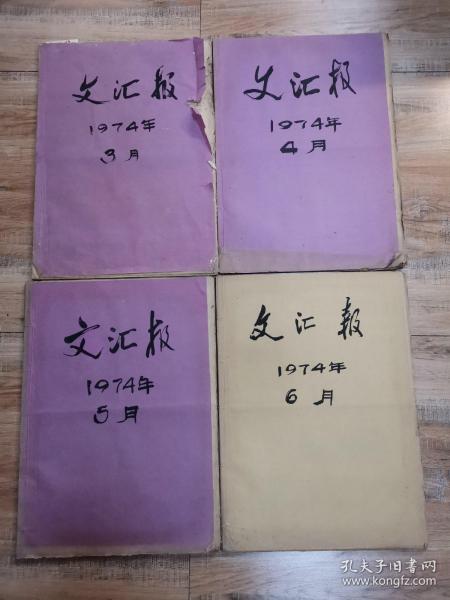 文汇报
1974年
3月
文汇报
1974年
4月
文汇报
1974年
5月
文汇報
1974年
6月
孔夫子旧书网
www.kongfz.com